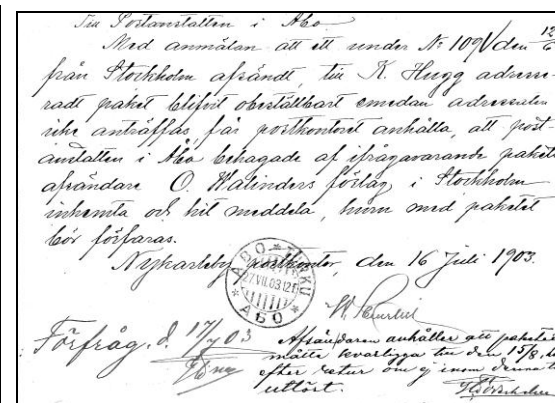 Till Postanstalten i Åbo
Med anmälan att ett under № 109 den 12
från Stockholm afsändt, till K. Hugg adresse-
radt paket blifvit obeställbart emedan adressaten
icke anträffas, får postkontoret anhålla, att post-
anstalten i Åbo behagade af ifrågavarande pakets
afsändare O. Walinders förlag i Stockholm
inhemta och hit meddela, huru med paketet
bör förfaras.
Nykarleby postkontor, den 16 Juli 1903.
ABO * TURKU
17.VII.03 12
АБО
Förfråg. d. 17/7 03
Afsändaren anhåller att paketet
måtte kvarligga till den 15/8,
efter retur om ej inom denna
utlöst.